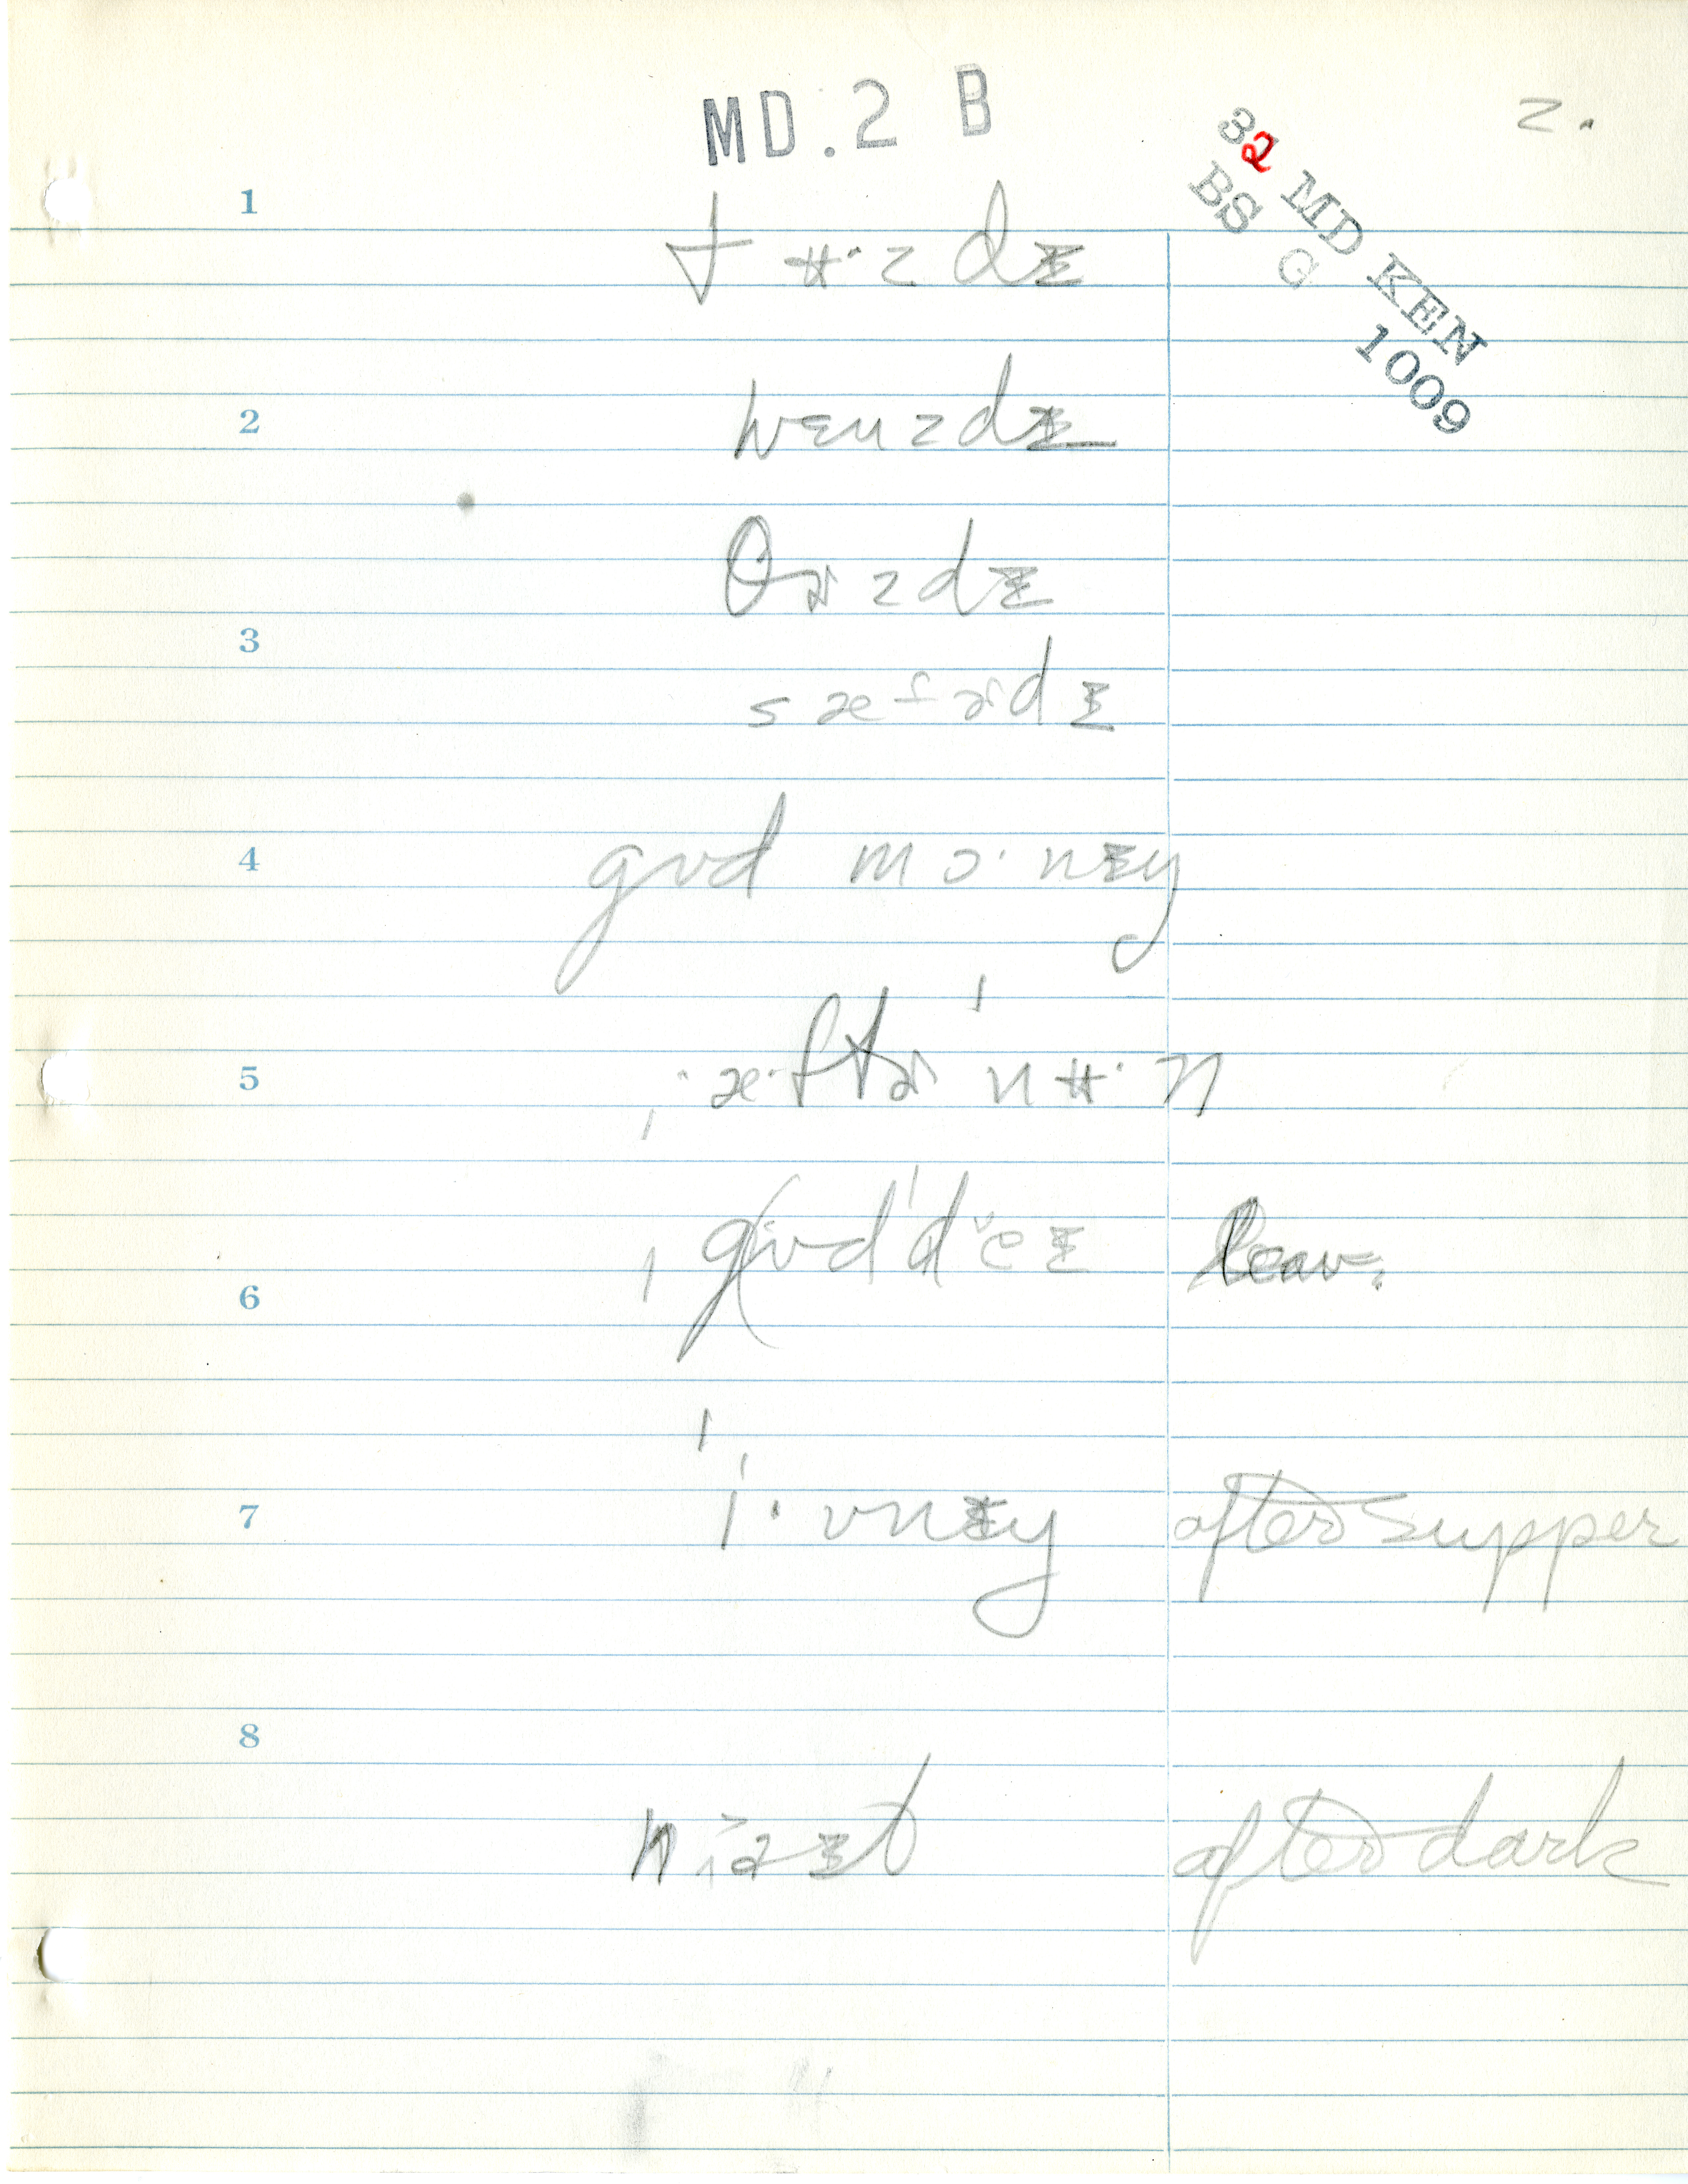 MD.2 B
2.
32 MD KEN
BS G 1009
1
tʉ·zdɪ̵
2
wɛnzdɪ̵
θɚzdɪ̵
3
sæt̬ɚdɪ̵
4
gʊd mɔ·nɪ̵ŋ
5
ˌæ·ftɚˈnʉ·n
6
ˌgʊdˈdeɪ̵ leav.
7
ˈi·vnɪ̵ŋ after supper
8
after dark